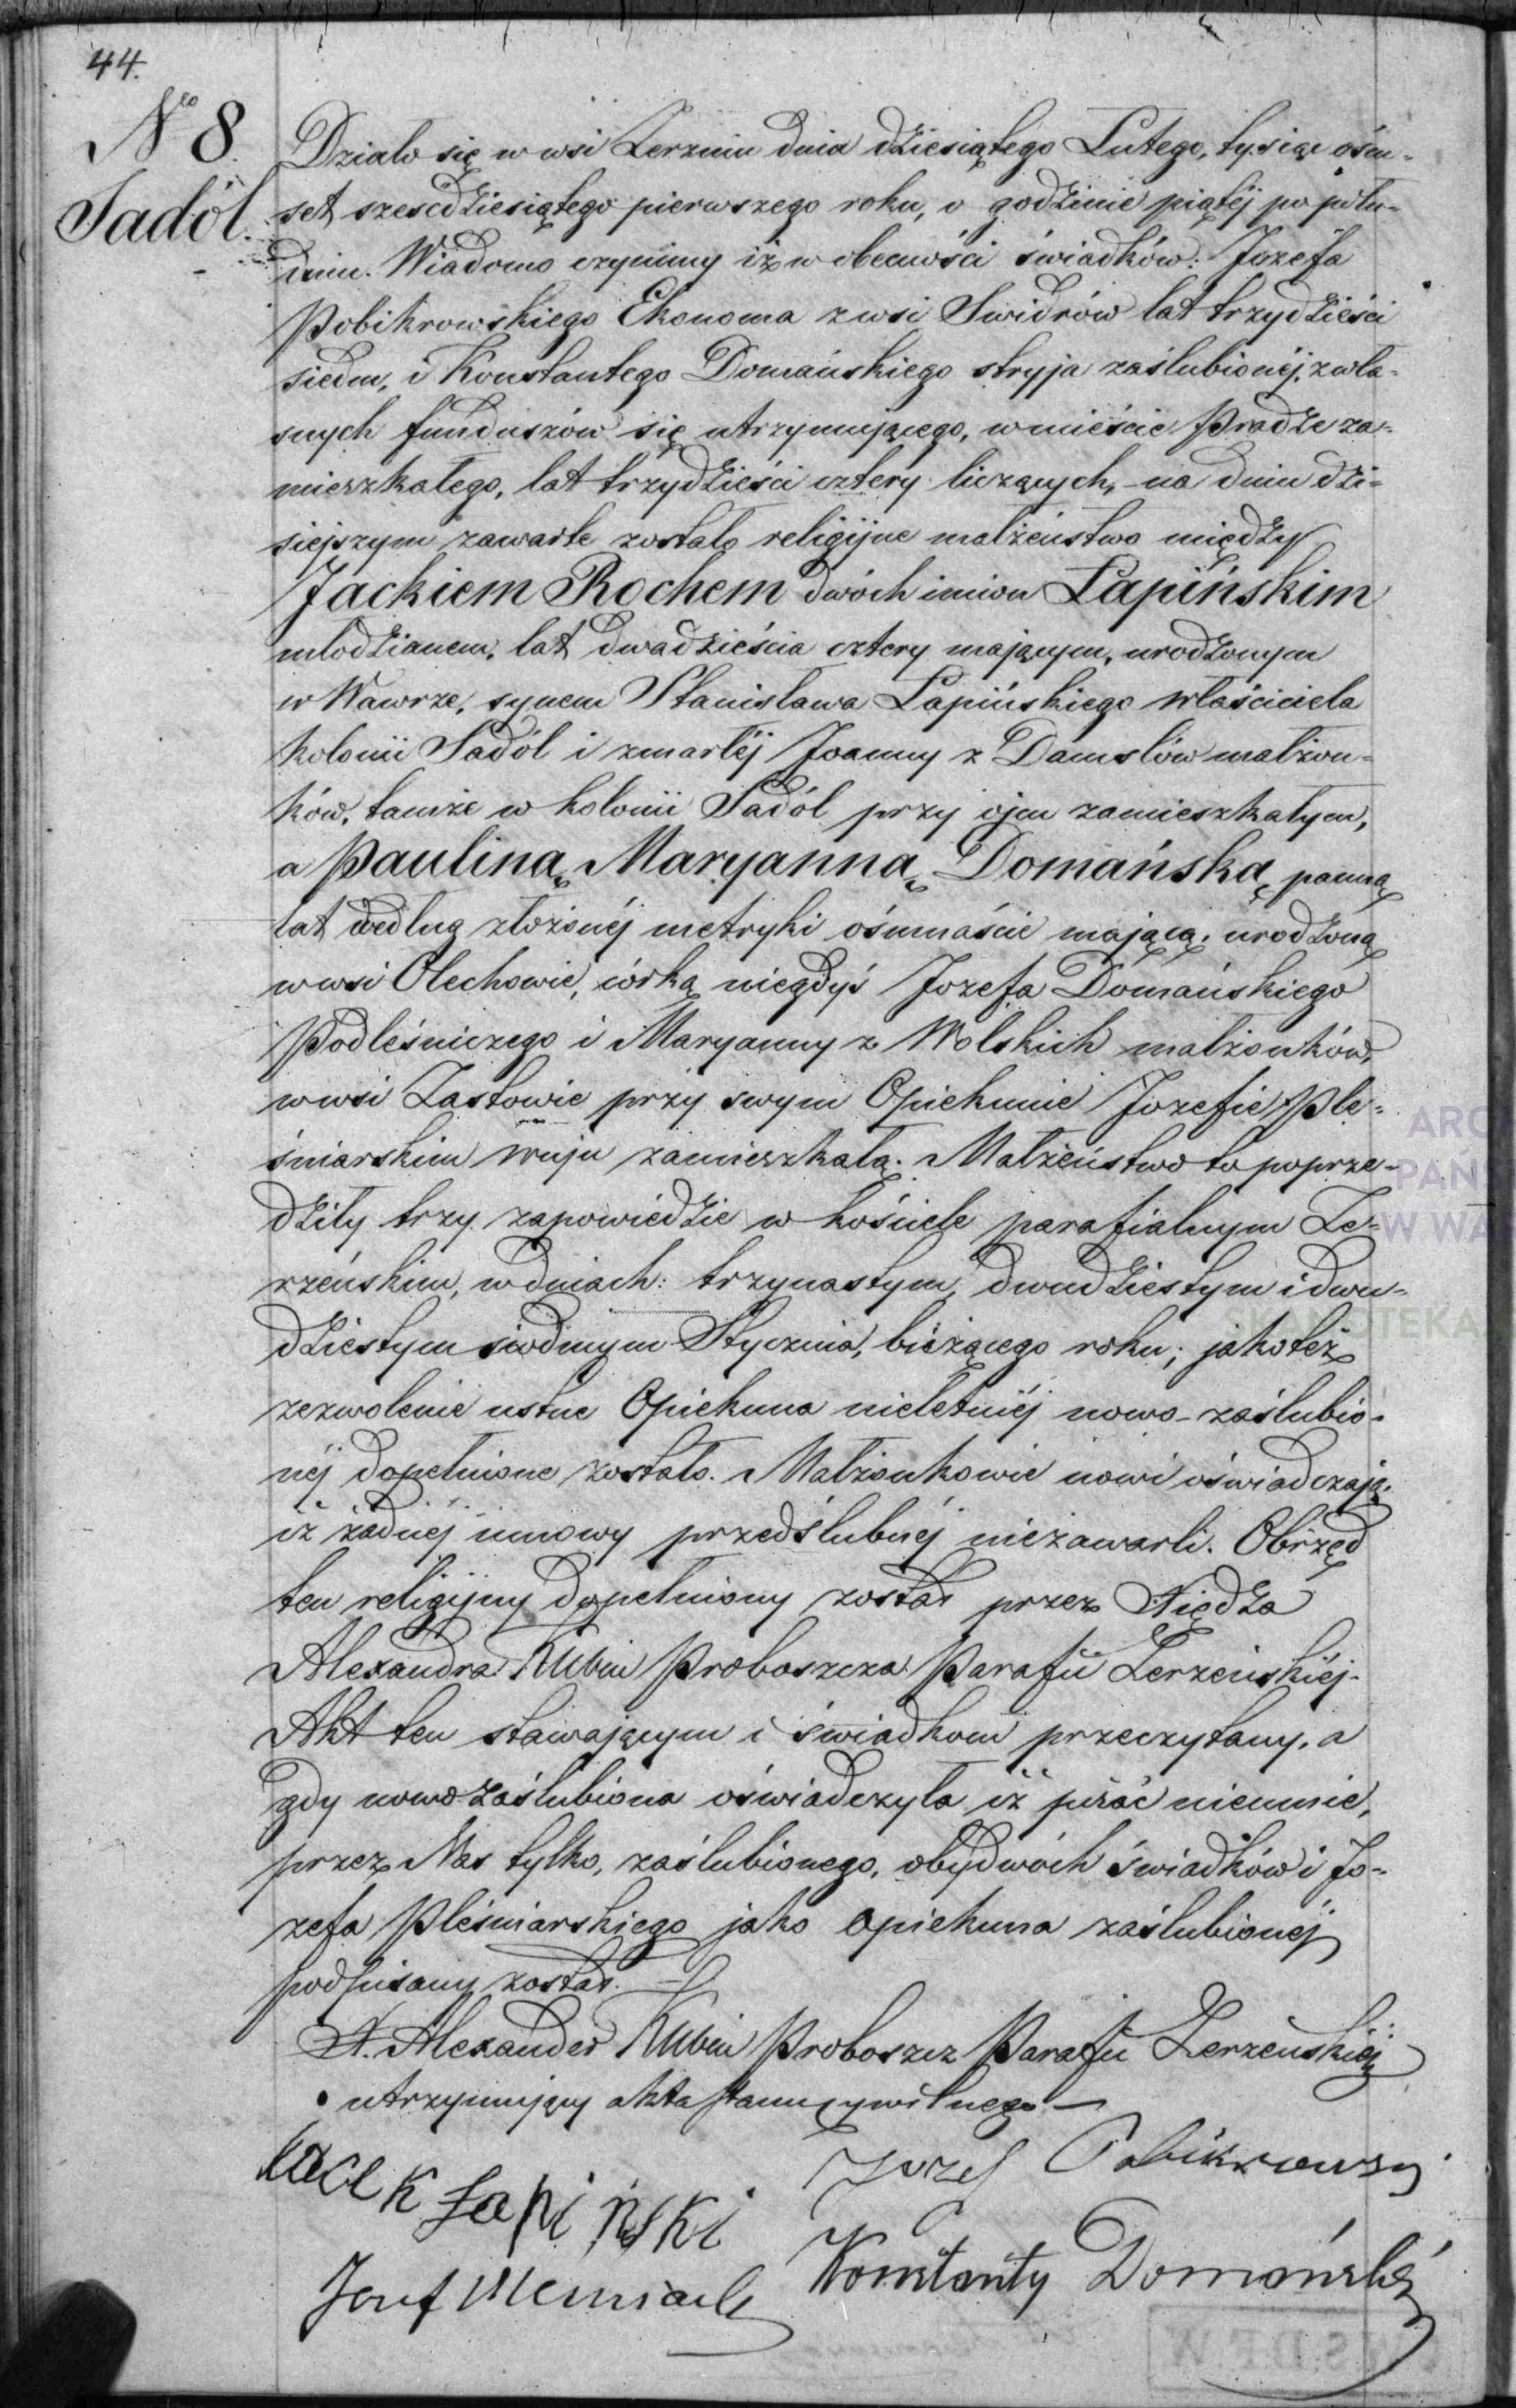 44.
No 8.
Sadól.
Działo się w wsi Zerzniu dnia dziesiątego Lutego, tysiąc ośm-
set sześćdziesiątego pierwszego roku, o godzinie piątéj po połu-
dniu. Wiadomo czynimy iż w obecności świadków: Jozefa
Pobikrowskiego Ekonoma z wsi Swidrów lat trzydzieści
siedm, i Konstantego Domańskiego stryja zaślubionéj, z wła-
snych funduszów się utrzymującego, w mieście Pradze za-
mieszkałego, lat trzydzieści cztery liczących, na dniu dzi-
siejszym zawarte zostało religijne małżeństwo między
Jackiem Rochem dwóch imion Łapińskim
młodzianem, lat dwadzieścia cztery mającym, urodzonym
w Wawrze, synem Stanisława Łapińskiego właściciela
kolonii Sadól i zmarłéj Joanny z Damsłów małżon-
ków, tamże w kolonii Sadól przy ojcu zamieszkałym,
a Pauliną Maryanną Domańską panną
lat według złożonéj metryki ośmnaście mającą, urodzoną
w wsi Olechowie, córką niegdyś Jozefa Domańskiego
Podleśniczego i Maryanny z Wolskich małżonków,
w wsi Zastowie przy swym Opiekunie Jozefie Ple-
śniarskim wuju zamieszkałą. Małżeństwo to poprze-
dziły trzy zapowiedzie w kościele parafialnym Ze-
rzeńskim, w dniach: trzynastym, dwudziestym i dwu-
dziestym siódmym Stycznia, bieżącego roku; jako też
zezwolenie ustne Opiekuna nieletniéj nowo-zaślubio-
néj dopełnione zostało. Małżonkowie nowi oświadczają,
iż żadnéj umowy przedślubnéj niezawarli. Obrzęd
ten religijny dopełniony został przez Xiędza
Alexandra Kubin Proboszcza Parafii Zerzeńskiéj.
Akt ten stawającym i świadkom przeczytany, a
gdy nowo zaślubiona oświadczyła iż pisać nieumie,
przez Nas tylko, zaślubionego, obydwóch świadków i Jo-
zefa Pleśniarskiego jako opiekuna zaślubionéj
podpisany został.
X. Alexander Kubin Proboszcz Parafii Zerzeńskiéj
utrzymujący akta stanu cywilnego
Jacek Łapiński
Jozef Pobikrowski
Konstanty Domański
Jozef
ARC
PAŃS
W WA
SKANOTEKA